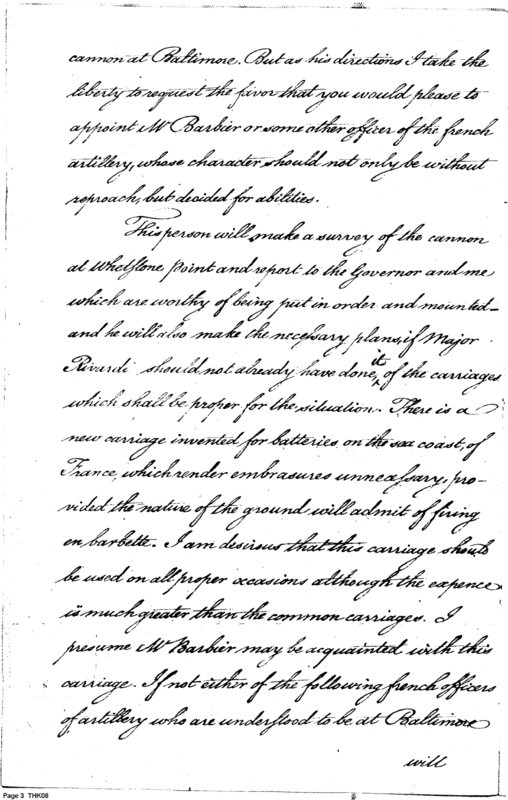 cannon at Baltimore. But as his directions I take the
liberty to request the favor that you would please to
appoint Mr Barbier or some other officer of the french
artillery, whose character should not only be without
reproach, but decided for abilities.
This person will make a survey of the cannon
at Whetstone Point and report to the Governor and me
which are worthy of being put in order and mounted—
and he will also make the necessary plans, if Major
Rivardi should not already have done it, of the carriages
which shall be proper for the situation. There is a
new carriage invented for batteries on the sea coast, of
France, which render embrasures unnecessary, pro-
vided the nature of the ground will admit of firing
en barbette. I am desirous that this carriage should
be used on all proper occasions although the expence
is much greater than the common carriages. I
presume Mr Barbier may be acquainted with this
carriage. If not either of the following french officers
of artillery who are understood to be at Baltimore
will
Page 3 THK08